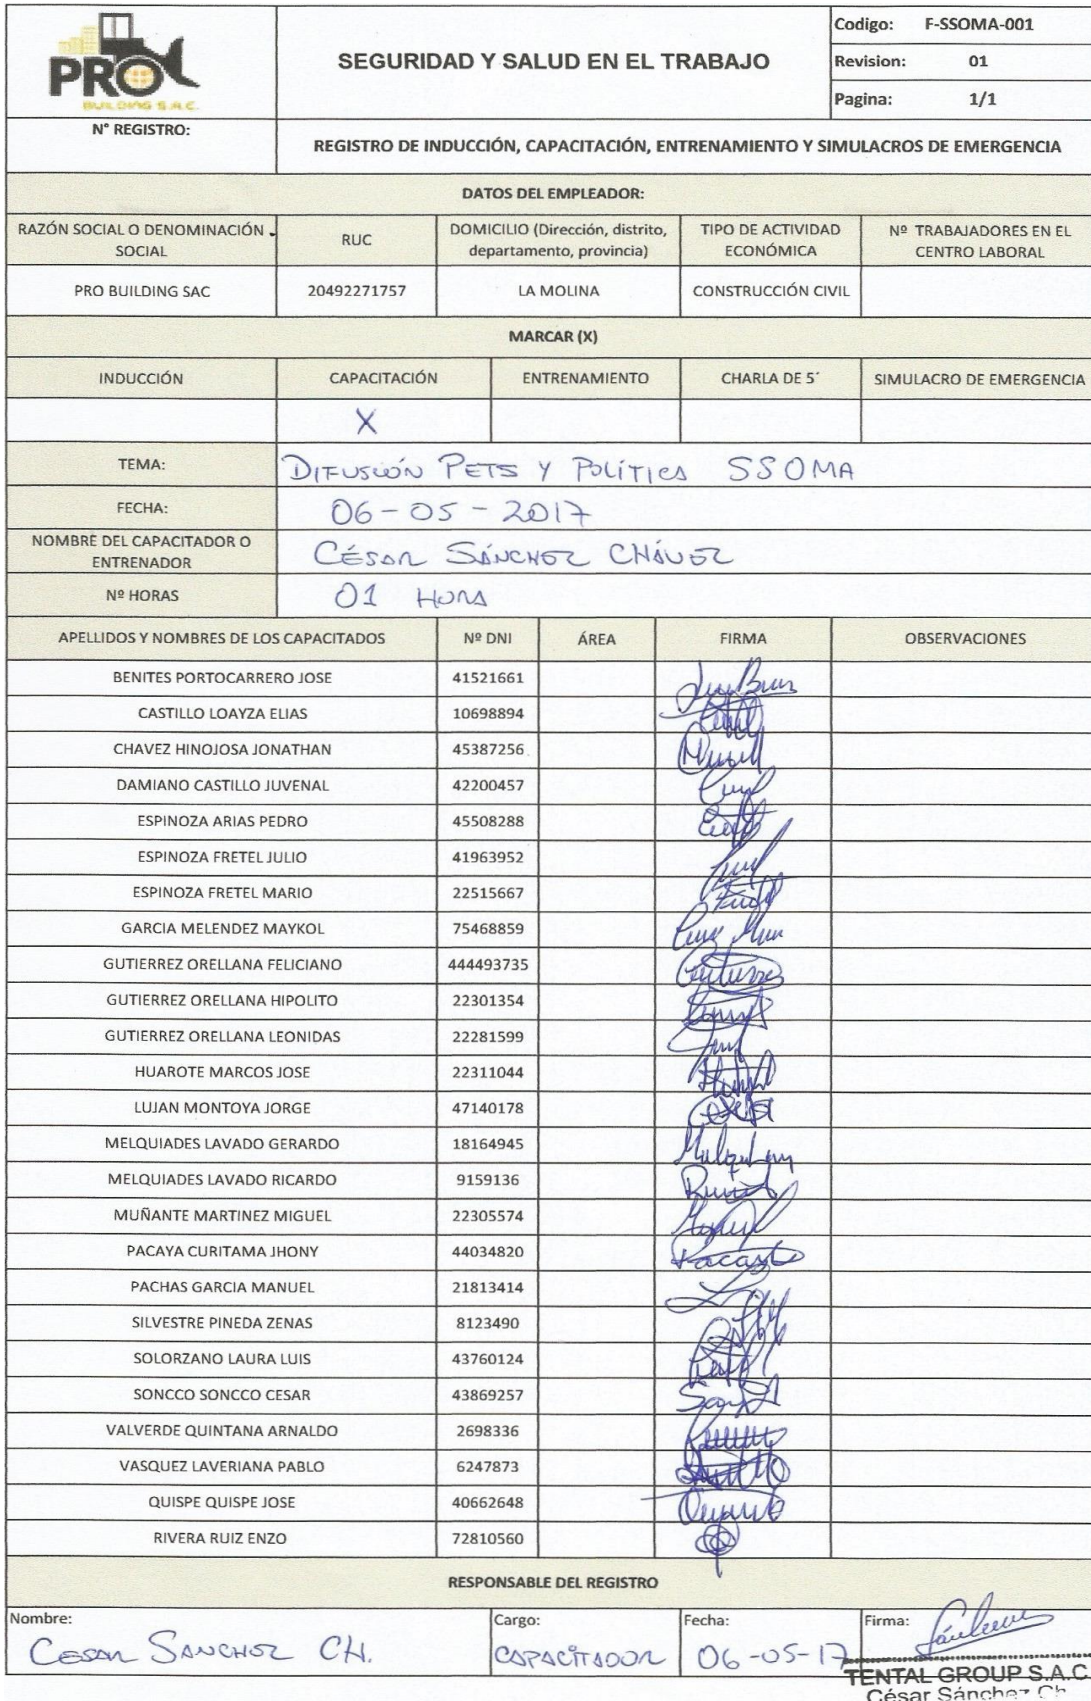 PRO
BUILDING S.A.C.
SEGURIDAD Y SALUD EN EL TRABAJO
Codigo: F-SSOMA-001
Revision: 01
Pagina: 1/1
N° REGISTRO:
REGISTRO DE INDUCCIÓN, CAPACITACIÓN, ENTRENAMIENTO Y SIMULACROS DE EMERGENCIA
DATOS DEL EMPLEADOR:
RAZÓN SOCIAL O DENOMINACIÓN
SOCIAL
RUC
DOMICILIO (Dirección, distrito,
departamento, provincia)
TIPO DE ACTIVIDAD
ECONÓMICA
Nº TRABAJADORES EN EL
CENTRO LABORAL
PRO BUILDING SAC 20492271757 LA MOLINA CONSTRUCCIÓN CIVIL
MARCAR (X)
INDUCCIÓN CAPACITACIÓN ENTRENAMIENTO CHARLA DE 5´ SIMULACRO DE EMERGENCIA
X
TEMA: DIFUSIÓN PETS Y POLÍTICA SSOMA
FECHA: 06-05-2017
NOMBRE DEL CAPACITADOR O
ENTRENADOR
CÉSAR SÁNCHEZ CHÁVEZ
Nº HORAS 01 HORA
APELLIDOS Y NOMBRES DE LOS CAPACITADOS Nº DNI ÁREA FIRMA OBSERVACIONES
BENITES PORTOCARRERO JOSE 41521661
CASTILLO LOAYZA ELIAS 10698894
CHAVEZ HINOJOSA JONATHAN 45387256
DAMIANO CASTILLO JUVENAL 42200457
ESPINOZA ARIAS PEDRO 45508288
ESPINOZA FRETEL JULIO 41963952
ESPINOZA FRETEL MARIO 22515667
GARCIA MELENDEZ MAYKOL 75468859
GUTIERREZ ORELLANA FELICIANO 444493735
GUTIERREZ ORELLANA HIPOLITO 22301354
GUTIERREZ ORELLANA LEONIDAS 22281599
HUAROTE MARCOS JOSE 22311044
LUJAN MONTOYA JORGE 47140178
MELQUIADES LAVADO GERARDO 18164945
MELQUIADES LAVADO RICARDO 9159136
MUÑANTE MARTINEZ MIGUEL 22305574
PACAYA CURITAMA JHONY 44034820
PACHAS GARCIA MANUEL 21813414
SILVESTRE PINEDA ZENAS 8123490
SOLORZANO LAURA LUIS 43760124
SONCCO SONCCO CESAR 43869257
VALVERDE QUINTANA ARNALDO 2698336
VASQUEZ LAVERIANA PABLO 6247873
QUISPE QUISPE JOSE 40662648
RIVERA RUIZ ENZO 72810560
RESPONSABLE DEL REGISTRO
Nombre: Cargo: Fecha: Firma:
CESAR SANCHEZ CH. CAPACITADOR 06-05-17
TENTAL GROUP S.A.C
César Sánchez Ch